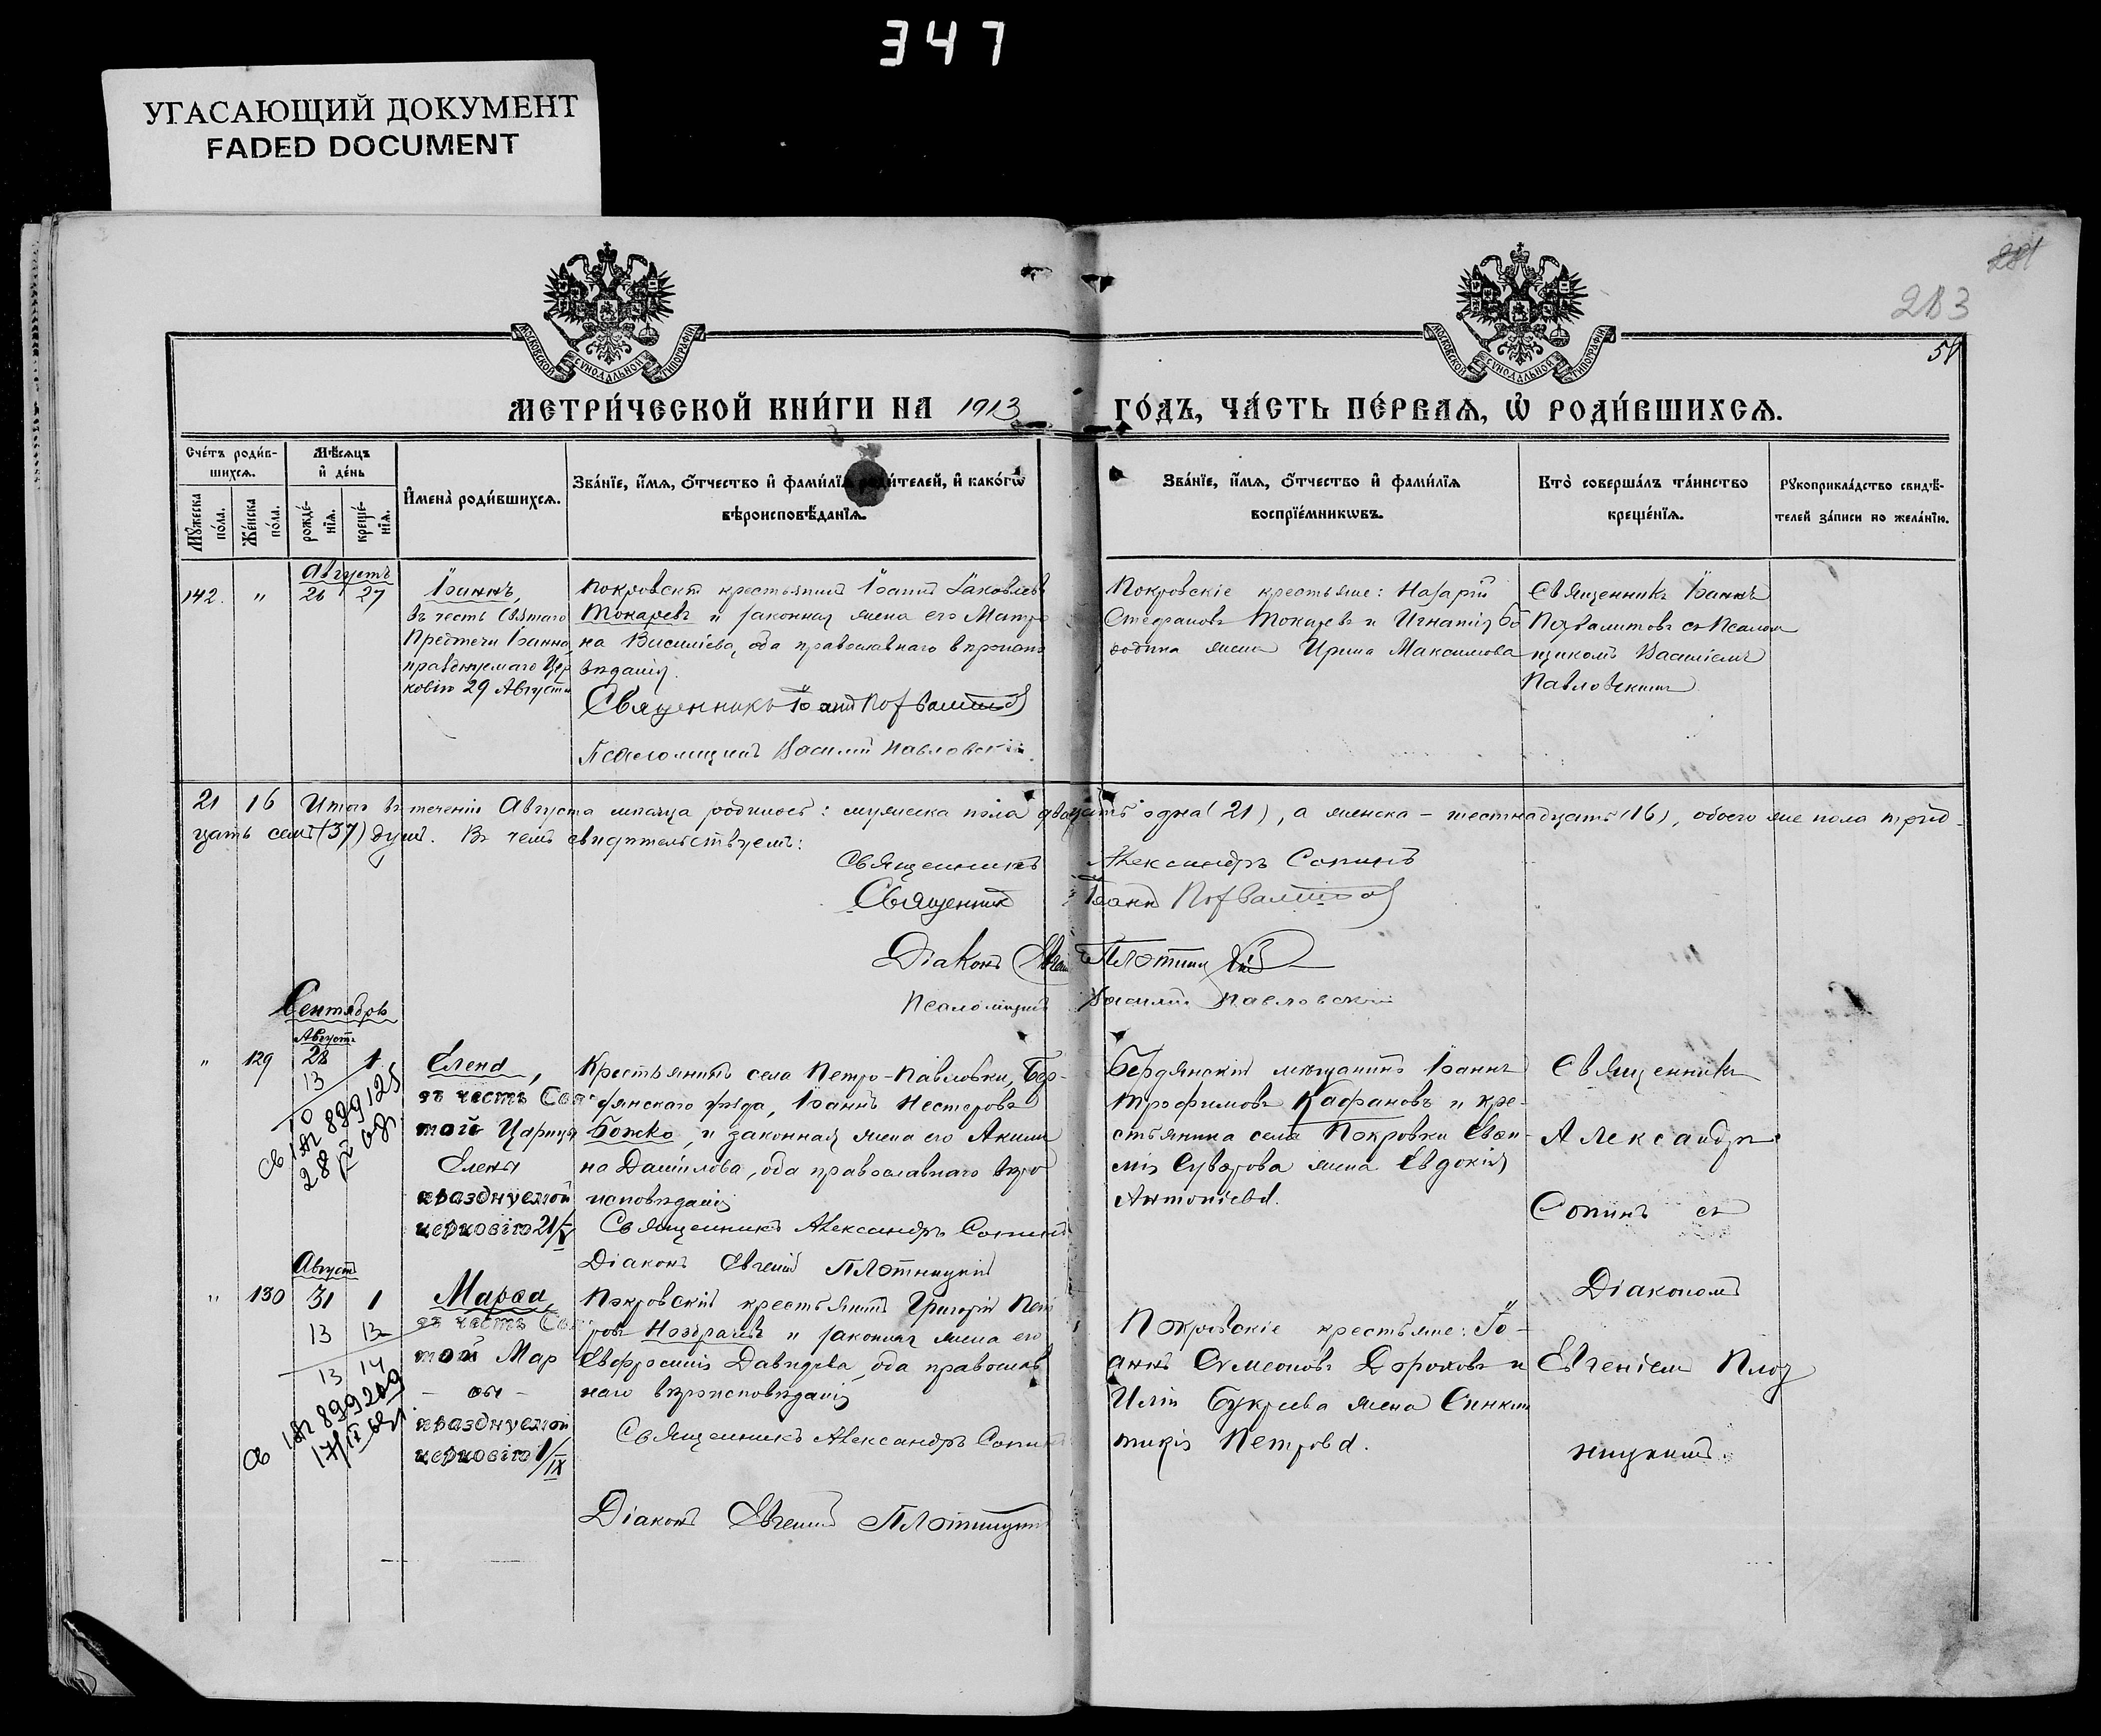 347
УГАСАЮЩИЙ ДОКУМЕНТ
FADED DOCUMENT
281
283
51
МОСКОВСКОЙ СѴНОДАЛЬНОЙ ТИПОГРАФІИ
МОСКОВСКОЙ СѴНОДАЛЬНОЙ ТИПОГРАФІИ
МЕТРИ́ЧЕСКОЙ КНИ́ГИ НА 1913 ГО́ДЪ, ЧА́СТЬ ПЕ́РВАѦ, Ѡ РОДИ́ВШИХСѦ.
Сче́тъ роди́в-
шихсѧ.
Мꙋжеска по́ла.
Же́нска по́ла.
Мѣ́сѧцъ
и де́нь
рожде́-нїѧ.
креще́-нїѧ.
Имена̀ роди́вшихсѧ.
Зва́нїе, и́мѧ, о́тчество и фами́лїѧ роди́телей, и како́гѡ
вѣроисповѣ́данїѧ.
Зва́нїе, и́мѧ, о́тчество и фами́лїѧ
воспрїе́мникѡвъ.
Кто̀ соверша́лъ та́инство
креще́нїѧ.
Рꙋкоприкла́дство свидѣ́-
телей за́писи по жела́нїю.
Августъ
142. " 26 27
Іоаннъ,
въ честь Святаго
Предтечи Іоанна,
празднуемаго Цер
ковію 29 Августа
Покровскій крестьянинъ Іоаннъ Іаковлевъ
Токаревъ и законная жена его Матро
на Василіева, оба православнаго вѣроиспо
вѣданія.
Священникъ Іоаннъ Позвалитов
Псаломщикъ Василій Павловскій.
Покровскіе крестьяне: Назарій
Стефановъ Токаревъ и Игнатія Бо
родина жена Ирина Максимова
Священникъ Іоаннъ
Позвалитовъ съ Псалом
щикомъ Василіемъ
Павловскимъ.
21 16 Итого въ теченіи Августа мѣсяца родилось: мужеска пола двадцать одна (21), а женска – шестнадцать (16), обоего же пола трид-
цать семь (37) душъ. Въ чемъ свидѣтельствуемъ:
Священникъ Александръ Сопинъ
Священникъ Іоаннъ Позвалитов
Діаконъ Евгеній Плотницкій
Псаломщикъ Василій Павловскій
Сентябрь
Августъ
" 129 28 1
13
10
Св 899125
Елена,
въ честь Свя
той Царицы
Елены
празднуемой
церковію 21/V
Крестьянинъ села Петро-Павловки, Бер-
дянскаго уѣзда, Іоаннъ Нестеровъ
Божко, и законная жена его Акили
на Даніилова, оба православнаго вѣро
исповѣданія
Священникъ Александръ Сопинъ
Діаконъ Евгеній Плотницкій
Бердянскій мѣщанинъ Іоаннъ
Трофимовъ Кафановъ и кре-
стьянина села Покровки Евѳи-
мія Суворова жена Евдокія
Антоніева.
Священникъ
Александръ
Сопинъ съ
Діакономъ
Евгеніемъ Плот
ницкимъ.
Августъ
" 130 31 1
13 13
13 14
Св 899209
Марѳа,
въ честь Свя
той Мар
– ѳы –
празднуемой
церковію 1/IX
Покровскій крестьянинъ Григорій Пет
ровъ Ноздрачевъ и законная жена его
Евфросинія Давидова, оба православ
наго вѣроисповѣданія
Священникъ Александръ Сопинъ
Діаконъ Евгеній Плотницкій
Покровскіе крестьяне: Іо-
аннъ Симеоновъ Дороховъ и
Иліи Букреева жена Синкли
тикія Петрова.